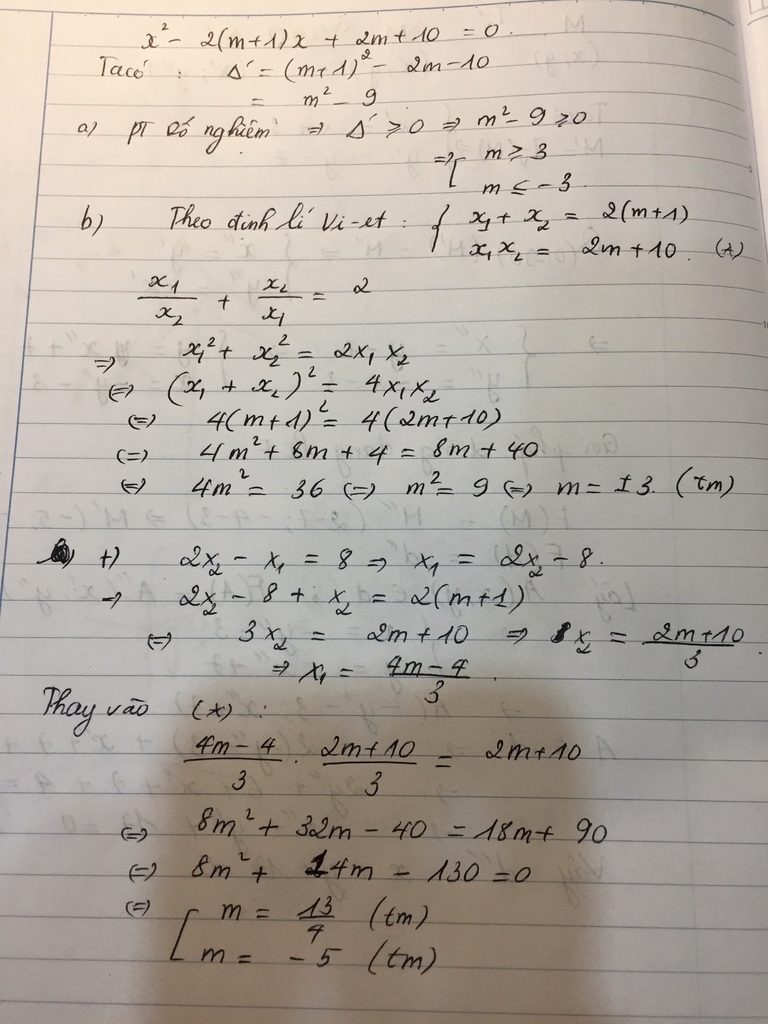 x² - 2(m+1)x + 2m+10 = 0.
Ta có : Δ' = (m+1)² - 2m-10
= m² - 9
a) pt có nghiệm ⇒ Δ' ⩾ 0 ⇒ m² - 9 ⩾ 0
⇒ [ m ⩾ 3
m ⩽ -3.
b) Theo định lí Vi-et : { x₁ + x₂ = 2(m+1)
x₁x₂ = 2m+10. (*)
x₁/x₂ + x₂/x₁ = 2
⇒ x₁² + x₂² = 2x₁x₂
⇔ (x₁ + x₂)² = 4x₁x₂
⇔ 4(m+1)² = 4(2m+10)
⇔ 4m² + 8m + 4 = 8m + 40
⇔ 4m² = 36 ⇔ m² = 9 ⇔ m = ±3. (tm)
+) 2x₂ - x₁ = 8 ⇒ x₁ = 2x₂ - 8.
⇒ 2x₂ - 8 + x₂ = 2(m+1)
⇔ 3x₂ = 2m+10 ⇒ x₂ = (2m+10)/3.
⇒ x₁ = (4m-4)/3.
Thay vào (*) :
(4m-4)/3 . (2m+10)/3 = 2m+10
⇔ 8m² + 32m - 40 = 18m + 90
⇔ 8m² + 14m - 130 = 0
⇔ [ m = 13/4 (tm)
m = -5 (tm)